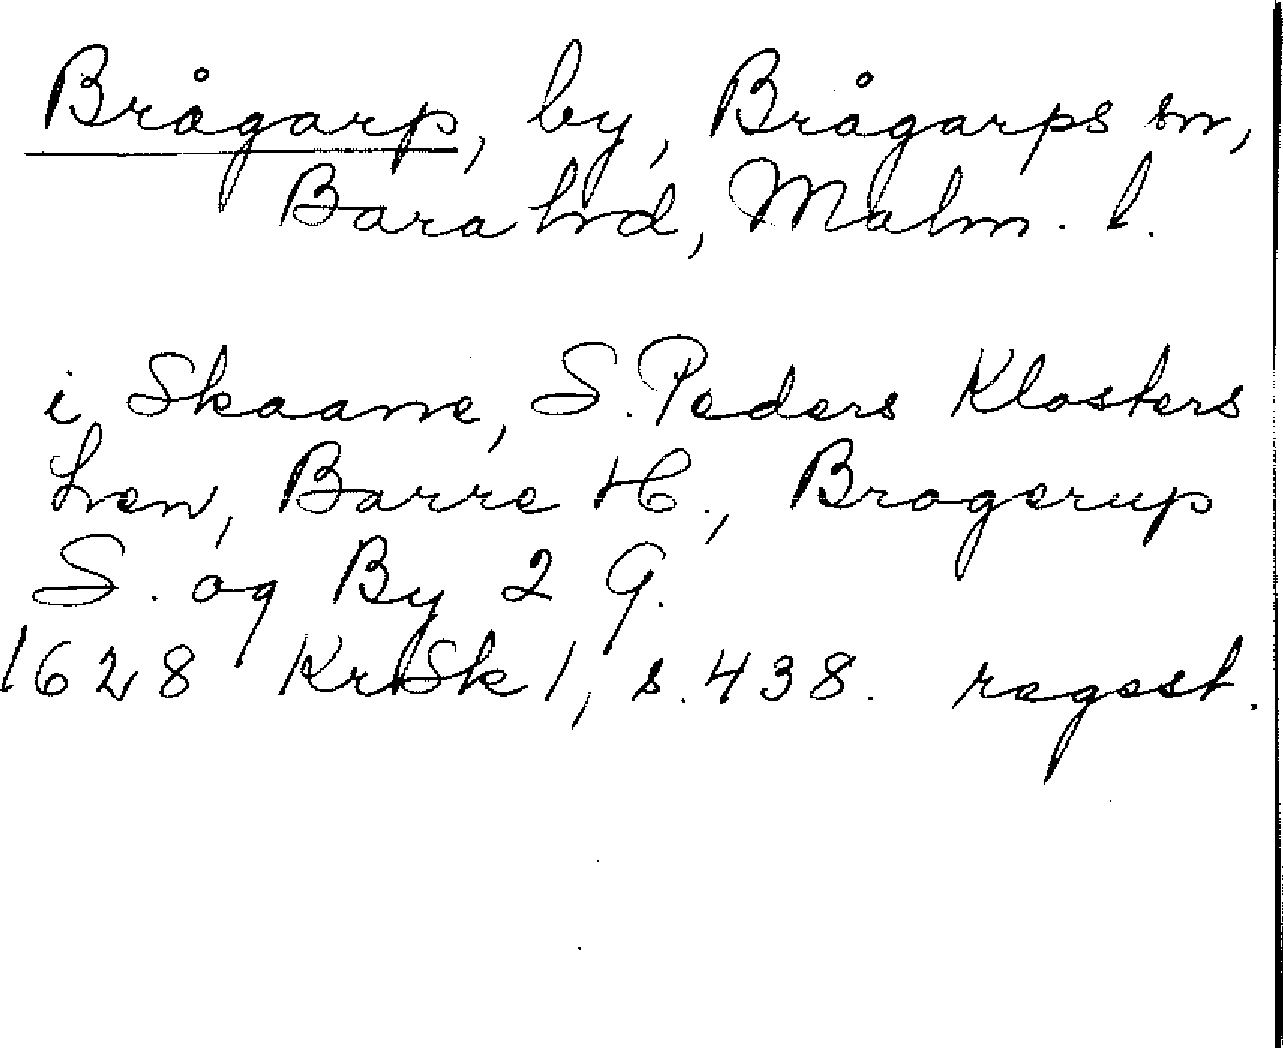 Brågarp, by, Brågarps sn,
Bara hd, Malm. l.
i Skaane, S. Peders Klosters
Len, Barre H., Brogerup
S. og By 2 G.
1628 KrSk 1, s. 438. regest.